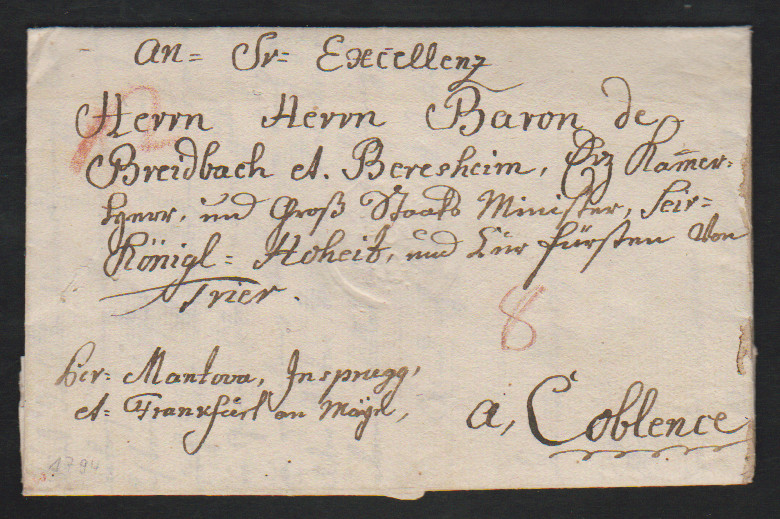 An= Sr= Excellenz
Herrn Herrn Baron de
Breidbach et. Beresheim, Erz Kam̅er=
herr, und Groß Staats Minister, Seir=
Königl= Hoheit, und Cur fürsten Von
Trier.
12
8
per= Mantova, Inspragg,
et= Franckfurt an Mayn,
a, Coblence
1794